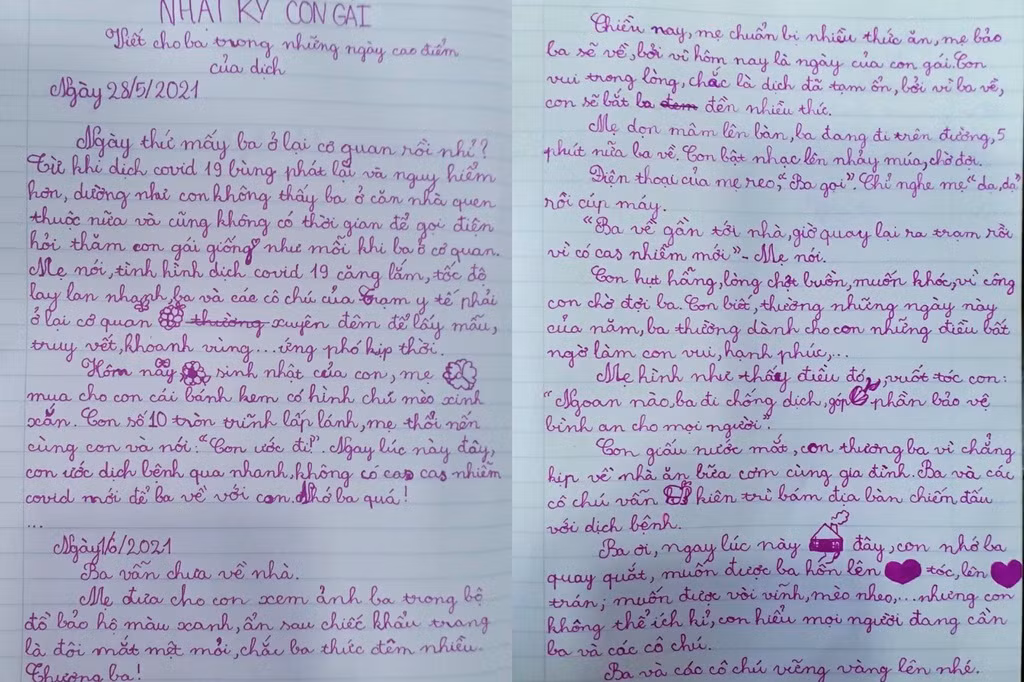 NHẬT KÝ CON GÁI
Viết cho ba trong những ngày cao điểm
của dịch
Ngày 28/5/2021
Ngày thứ mấy ba ở lại cơ quan rồi nhỉ?
Từ khi dịch covid 19 bùng phát lại và nguy hiểm
hơn, dường như con không thấy ba ở căn nhà quen
thuộc nữa và cũng không có thời gian để gọi điện
hỏi thăm con gái giống như mỗi khi ba ở cơ quan.
Mẹ nói, tình hình dịch covid 19 căng lắm, tốc độ
lây lan nhanh, ba và các cô chú của trạm y tế phải
ở lại cơ quan thường xuyên đêm để lấy mẫu,
truy vết, khoanh vùng...ứng phó kịp thời.
Hôm nay, sinh nhật của con, mẹ
mua cho con cái bánh kem có hình chú mèo xinh
xắn. Con số 10 tròn trĩnh lấp lánh, mẹ thổi nến
cùng con và nói: "Con ước đi!". Ngay lúc này đây,
con ước dịch bệnh qua nhanh, không có cas nhiễm
covid mới để ba về với con. Nhớ ba quá!
...
Ngày 1/6/2021
Ba vẫn chưa về nhà.
Mẹ đưa cho con xem ảnh ba trong bộ
đồ bảo hộ màu xanh, ẩn sau chiếc khẩu trang
là đôi mắt mệt mỏi, chắc ba thức đêm nhiều.
Thương ba!
Chiều nay, mẹ chuẩn bị nhiều thức ăn, mẹ bảo
ba sẽ về, bởi vì hôm nay là ngày của con gái. Con
vui trong lòng, chắc là dịch đã tạm ổn, bởi vì ba về,
con sẽ bắt ba đem đền nhiều thức.
Mẹ dọn mâm lên bàn, ba đang đi trên đường, 5
phút nữa ba về. Con bật nhạc lên nhảy múa, chờ đợi.
Điện thoại của mẹ reo, "Ba gọi". Chỉ nghe mẹ "dạ, dạ"
rồi cúp máy.
"Ba về gần tới nhà, giờ quay lại ra trạm rồi
vì có cas nhiễm mới" - Mẹ nói.
Con hụt hẫng, lòng chợt buồn, muốn khóc, vì công
con chờ đợi ba. Con biết, thường những ngày này
của năm, ba thường dành cho con những điều bất
ngờ làm con vui, hạnh phúc,...
Mẹ hình như thấy điều đó, vuốt tóc con:
"Ngoan nào, ba đi chống dịch, góp phần bảo vệ
bình an cho mọi người".
Con giấu nước mắt, con thương ba vì chẳng
kịp về nhà ăn bữa cơm cùng gia đình. Ba và các
cô chú vẫn kiên trì bám địa bàn chiến đấu
với dịch bệnh.
Ba ơi, ngay lúc này đây, con nhớ ba
quay quắt, muốn được ba hôn lên tóc, lên
trán; muốn được vòi vĩnh, mèo nheo,...nhưng con
không thể ích kỉ, con hiểu mọi người đang cần
ba và các cô chú.
Ba và các cô chú vững vàng lên nhé.